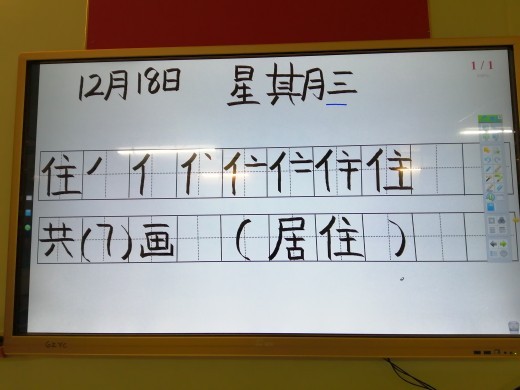 1/1
12月18日 星期三
住 丿 亻 亻丶 亻二 亻三 住 住
共(7)画 (居住)